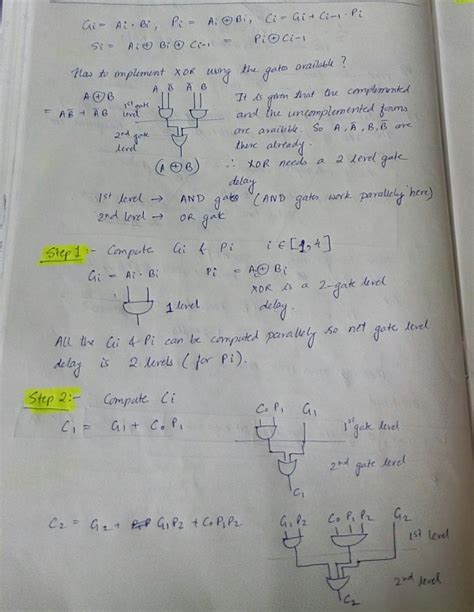 Gi = Ai · Bi, Pi = Ai ⊕ Bi, Ci = Gi + Ci-1 · Pi
Si = Ai ⊕ Bi ⊕ Ci-1 = Pi ⊕ Ci-1
How to implement XOR using the gates available ?
A ⊕ B
= AB̄ + ĀB
1st gate level
2nd gate level
A B̄ Ā B
(A ⊕ B)
It is given that the complemented
and the uncomplemented forms
are available. So A, Ā, B, B̄ are
there already.
∴ XOR needs a 2 level gate
delay
1st level → AND gates (AND gates work parallely here)
2nd level → OR gate
Step 1 :- Compute Gi & Pi i ∈ [1,4]
Gi = Ai · Bi
Pi = Ai ⊕ Bi
1 level
XOR is a 2-gate level
delay.
All the Gi & Pi can be computed parallely so net gate level
delay is 2 levels (for Pi).
Step 2 :- Compute Ci
C1 = G1 + C0 P1
C0 P1 G1
1st gate level
2nd gate level
C1
C2 = G2 + G1P2 + C0P1P2
G1P2 C0 P1 P2 G2
1st level
2nd level
C2